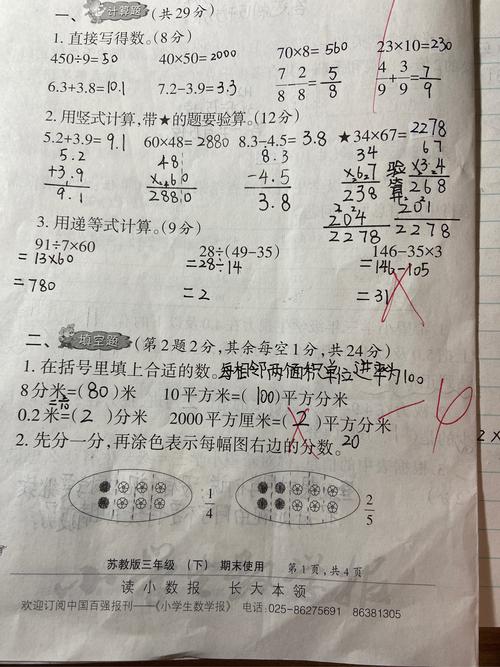 一、计算题(共29分)
1. 直接写得数。(8分)
450÷9=50 40×50=2000 70×8=560 23×10=230
6.3+3.8=10.1 7.2-3.9=3.3 7/8-2/8=5/8 4/9+3/9=7/9
2. 用竖式计算,带★的题要验算。(12分)
5.2+3.9=9.1 60×48=2880 8.3-4.5=3.8 ★34×67=2278
5.2 48 8.3 34 验算 67
+3.9 ×60 -4.5 ×67 ×34
9.1 2880 3.8 238 268
204 201
2278 2278
3. 用递等式计算。(9分)
91÷7×60 28÷(49-35) 146-35×3
=13×60 =28÷14 =146-105
=780 =2 =31
二、填空题(第2题2分,其余每空1分,共24分)
1. 在括号里填上合适的数。每相邻两面积单位进率为100
8分米=(80)米 10平方米=(100)平方分米
0.2米=(2)分米 2000平方厘米=(2)平方分米
20
2. 先分一分,再涂色表示每幅图右边的分数。
1/4 2/5
苏教版三年级(下) 期末使用 第1页,共4页
读小数报 长大本领
欢迎订阅中国百强报刊——《小学生数学报》 电话:025-86275691 86381305